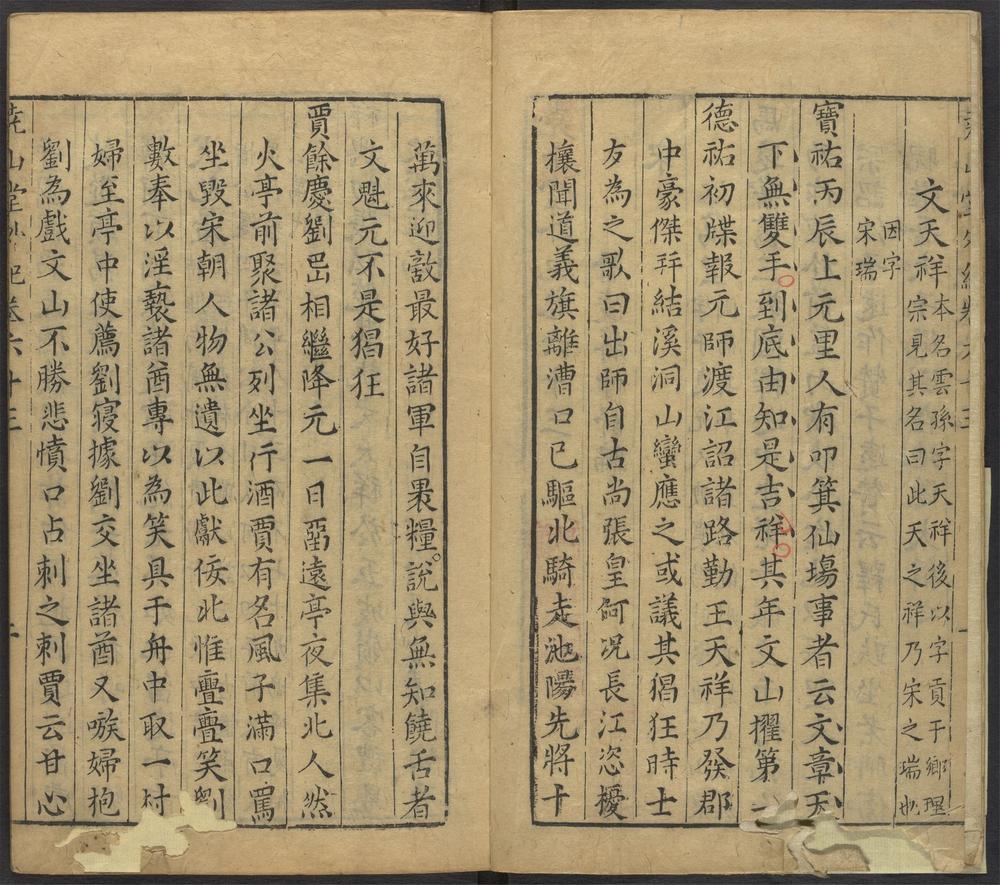 堯山堂外紀卷六十三
文天祥
本名雲孫字天祥後以字貢于鄉理
宗見其名曰此天之祥乃宋之瑞也
因字
宋瑞
寶祐丙辰上元里人有叩箕仙塲事者云文章天
下無雙手到底由知是吉祥其年文山擢第一
德祐初牒報元師渡江詔諸路勤王天祥乃發郡
中豪傑并結溪洞山蠻應之或議其猖狂時士
友為之歌曰出師自古尚張皇何况長江恣擾
攘聞道義旗離漕口已驅北騎走池陽先將十
萬來迎敵最好諸軍自裹糧。說與無知饒舌者
文魁元不是猖狂
賈餘慶劉岊相繼降元一日留遠亭夜集北人然
火亭前聚諸公列坐行酒賈有名風子滿口罵
坐毀宋朝人物無遺以此獻佞北惟亹亹笑劉
數奉以淫褻諸酋專以為笑具于舟中取一村
婦至亭中使薦劉寢據劉交坐諸酋又嗾婦抱
劉為戲文山不勝悲憤口占刺之刺賈云甘心
堯山堂外紀卷六十三
一